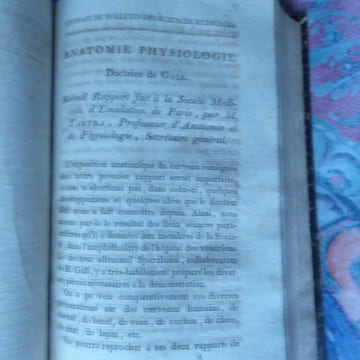 EXTRAIT DU BULLETIN DES SCIENCES MÉDICALES
ANATOMIE PHYSIOLOGIE
Doctrine de GALL.
Second Rapport fait à la Société Médi-
cale d'Emulation de Paris, par M.
TARTRA, Professeur d'Anatomie et
de Physiologie, Secrétaire général.
L'exposition anatomique du cerveau consignée
dans notre premier rapport seroit imparfaite
si nous n'ajoutions pas, dans celui-ci, quelques
développemens et quelques idées que le docteur
Gall nous a fait connoître depuis. Ainsi, nous
par le résultat des deux séances parti-
culières qu'il a données aux membres de la Socié-
té, dans l'amphithéâtre de l'hôpital des vénériens.
Le docteur allemand Spurzheim, collaborateur
de M. Gall, y a très-habilement préparé les diver-
ses pièces nécessaires à la démonstration.
On a pu voir comparativement ces diverses
sur des cerveaux humains, de
cheval, de bœuf, de veau, de cochon, de chien,
de chat, de lapin, etc.
On pourra reprocher à ces deux rapports de
A